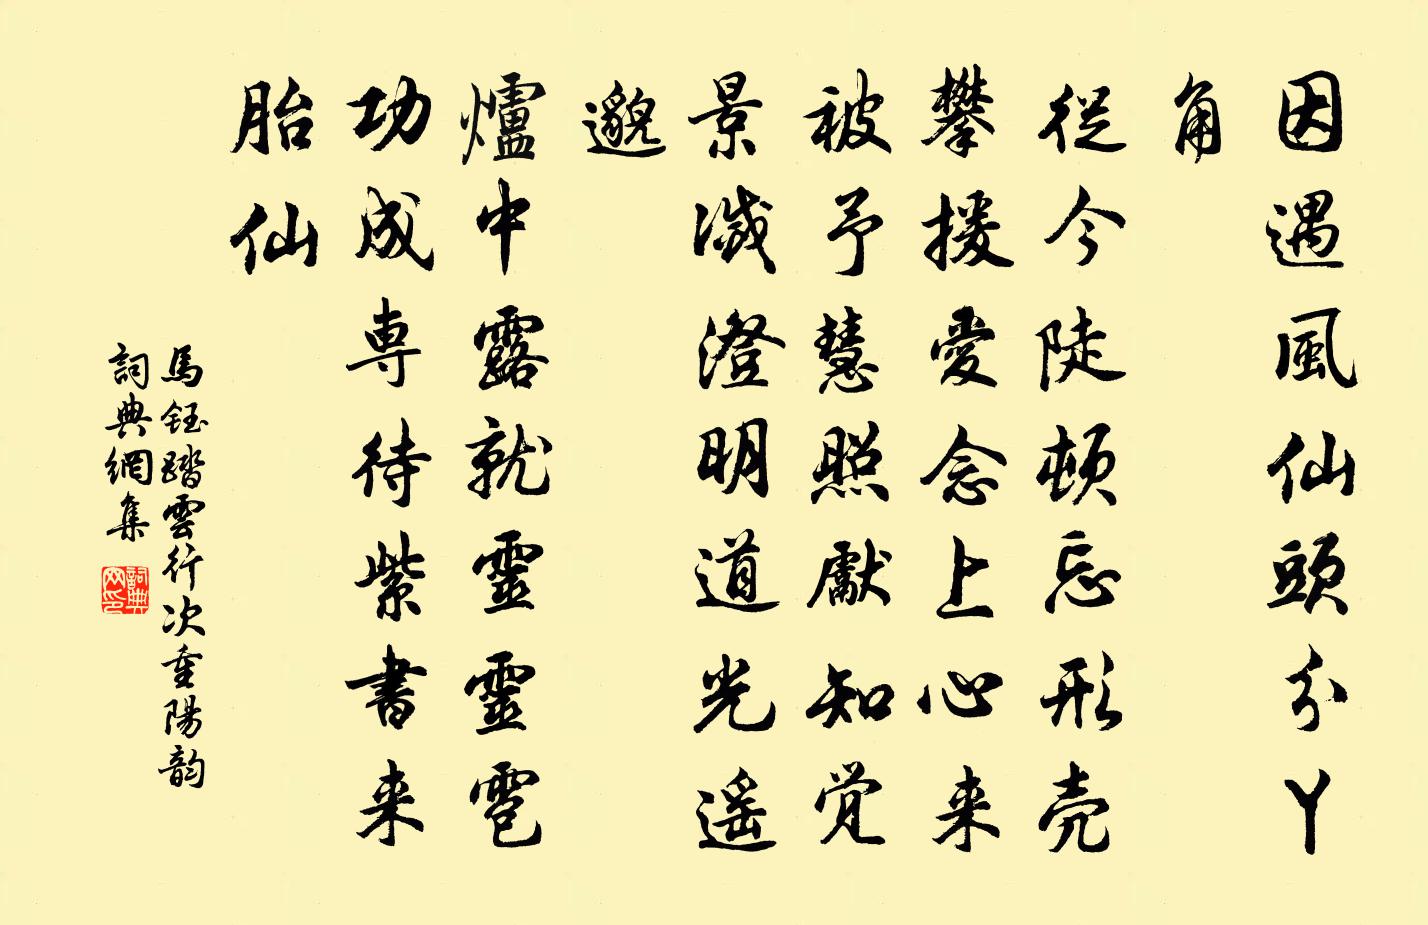 因遇風仙頭分丫
角
従今陡頓忘形壳
攀援愛念上心来
被予慧照獻知覚
景滅澄明道光遥
邈
爐中露就靈靈雹
功成専待紫書来
胎仙
馬鈺踏雲行次重陽韵
詞典網集
詞典网印